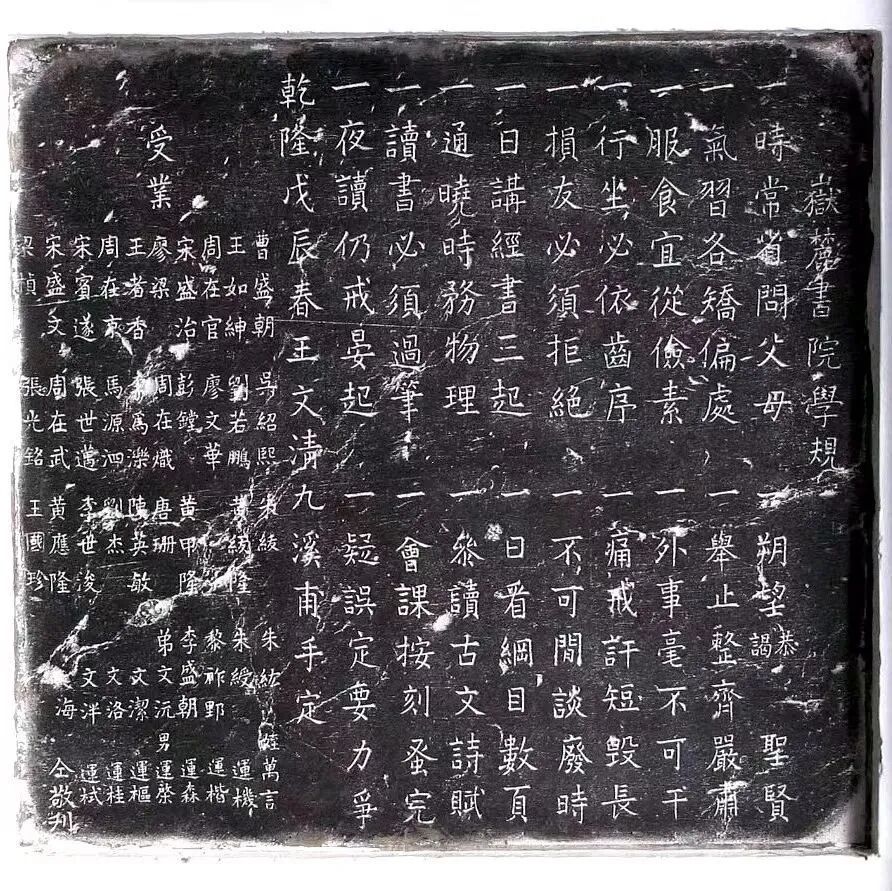 嶽麓書院學規
一時常省問父母 一朔望恭謁 聖賢
一氣習各矯偏處 一舉止整齊嚴肅
一服食宜從儉素 一外事毫不可干
一行坐必依齒序 一痛戒訐短毀長
一損友必須拒絕 一不可閒談廢時
一日講經書三起 一日看綱目數頁
一通曉時務物理 一叅讀古文詩賦
一讀書必須過筆 一會課按刻蚤完
一夜讀仍戒晏起 一疑誤定要力爭
乾隆戊辰春王文清九溪甫手定
受業
曹盛朝 吳紹熙 朱紱 朱紘 姪萬言
王如紳 劉若鵬 黃隆 朱綬 運機
周在官 廖文華 黎祚野 運楷
宋盛治 彭鏜 黃甲隆 李盛朝 運森
廖梁 周在熾 唐珊 弟文沅 男運棨
王者香 為濼 陳英敏 文潔 運樞
周在東 馬源泗 劉杰 文洛 運桂
宋賓遂 張世邁 李世浚 文泮 運栻
宋盛文 周在武 黃應隆 文海 仝敬刋
梁楨 張光銘 王國珍